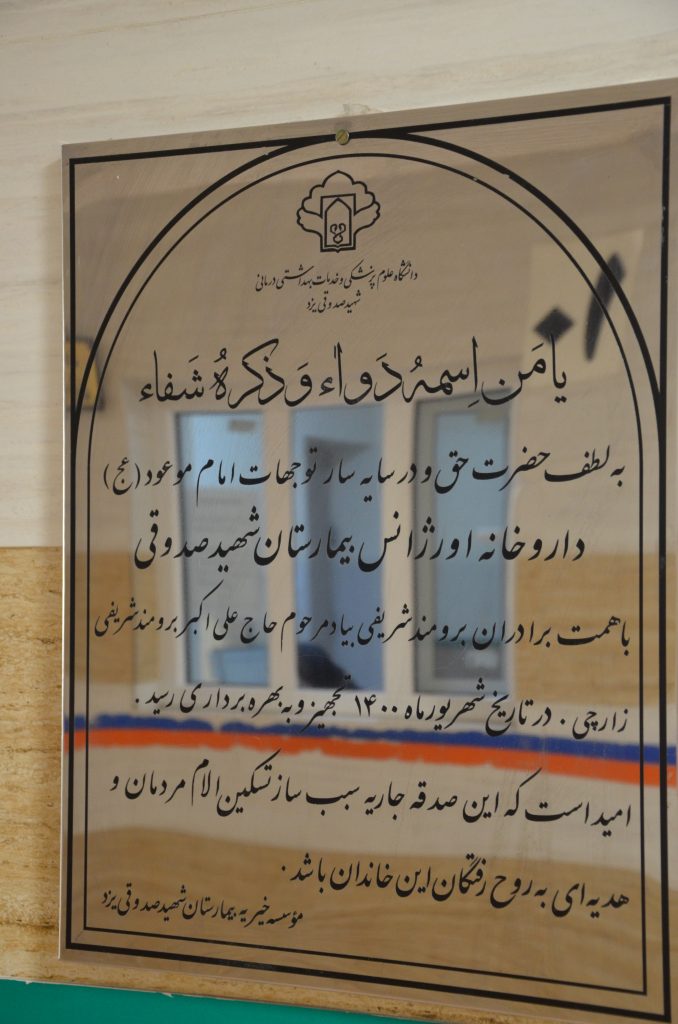 دانشگاه علوم پزشکی و خدمات بهداشتی درمانی
شهید صدوقی یزد
یا مَن اِسمهُ دَواء وَ ذکرهُ شَفاء
به لطف حضرت حق و در سایه سار توجهات امام موعود (عج)
داروخانه اورژانس بیمارستان شهید صدوقی
با همت برادران برومند شریفی بیاد مرحوم حاج علی اکبر برومند شریفی
زارچی . در تاریخ شهریور ماه ۱۴۰۰ تجهیز و به بهره برداری رسید .
امید است که این صدقه جاریه سبب ساز تسکین الام مردمان و
هدیه ای به روح رفتگان این خاندان باشد .
مؤسسه خیریه بیمارستان شهید صدوقی یزد